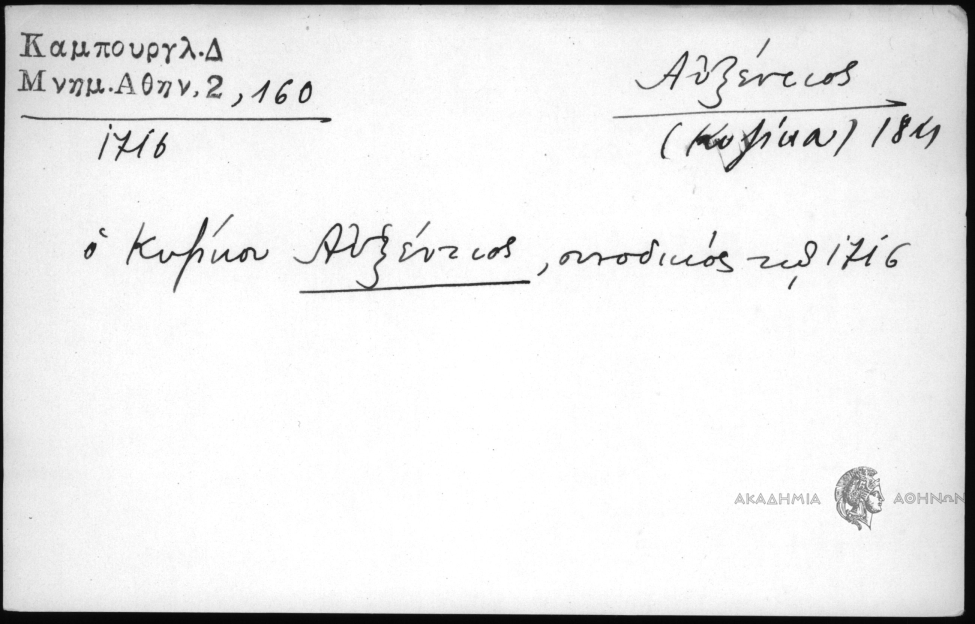 Καμπουργλ.Δ
Μνημ.Αθην.2,160
1716
Αὐξέντιος
(Κυζίκου)
ὁ Κυζίκου Αὐξέντιος, συνοδικός τῷ 1716
ΑΚΑΔΗΜΙΑ ΑΘΗΝΩΝ